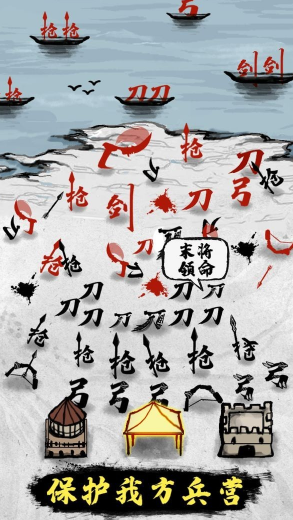 弓
枪 枪
剑 剑
枪
刀 刀
枪
刀
枪
弓
枪
剑
刀
末将
领命
枪
枪
刀
刀
刀
刀
刀
刀
刀
刀
刀
刀
枪
枪
枪
枪
枪
枪
弓
弓
弓
弓
弓
保护我方兵营